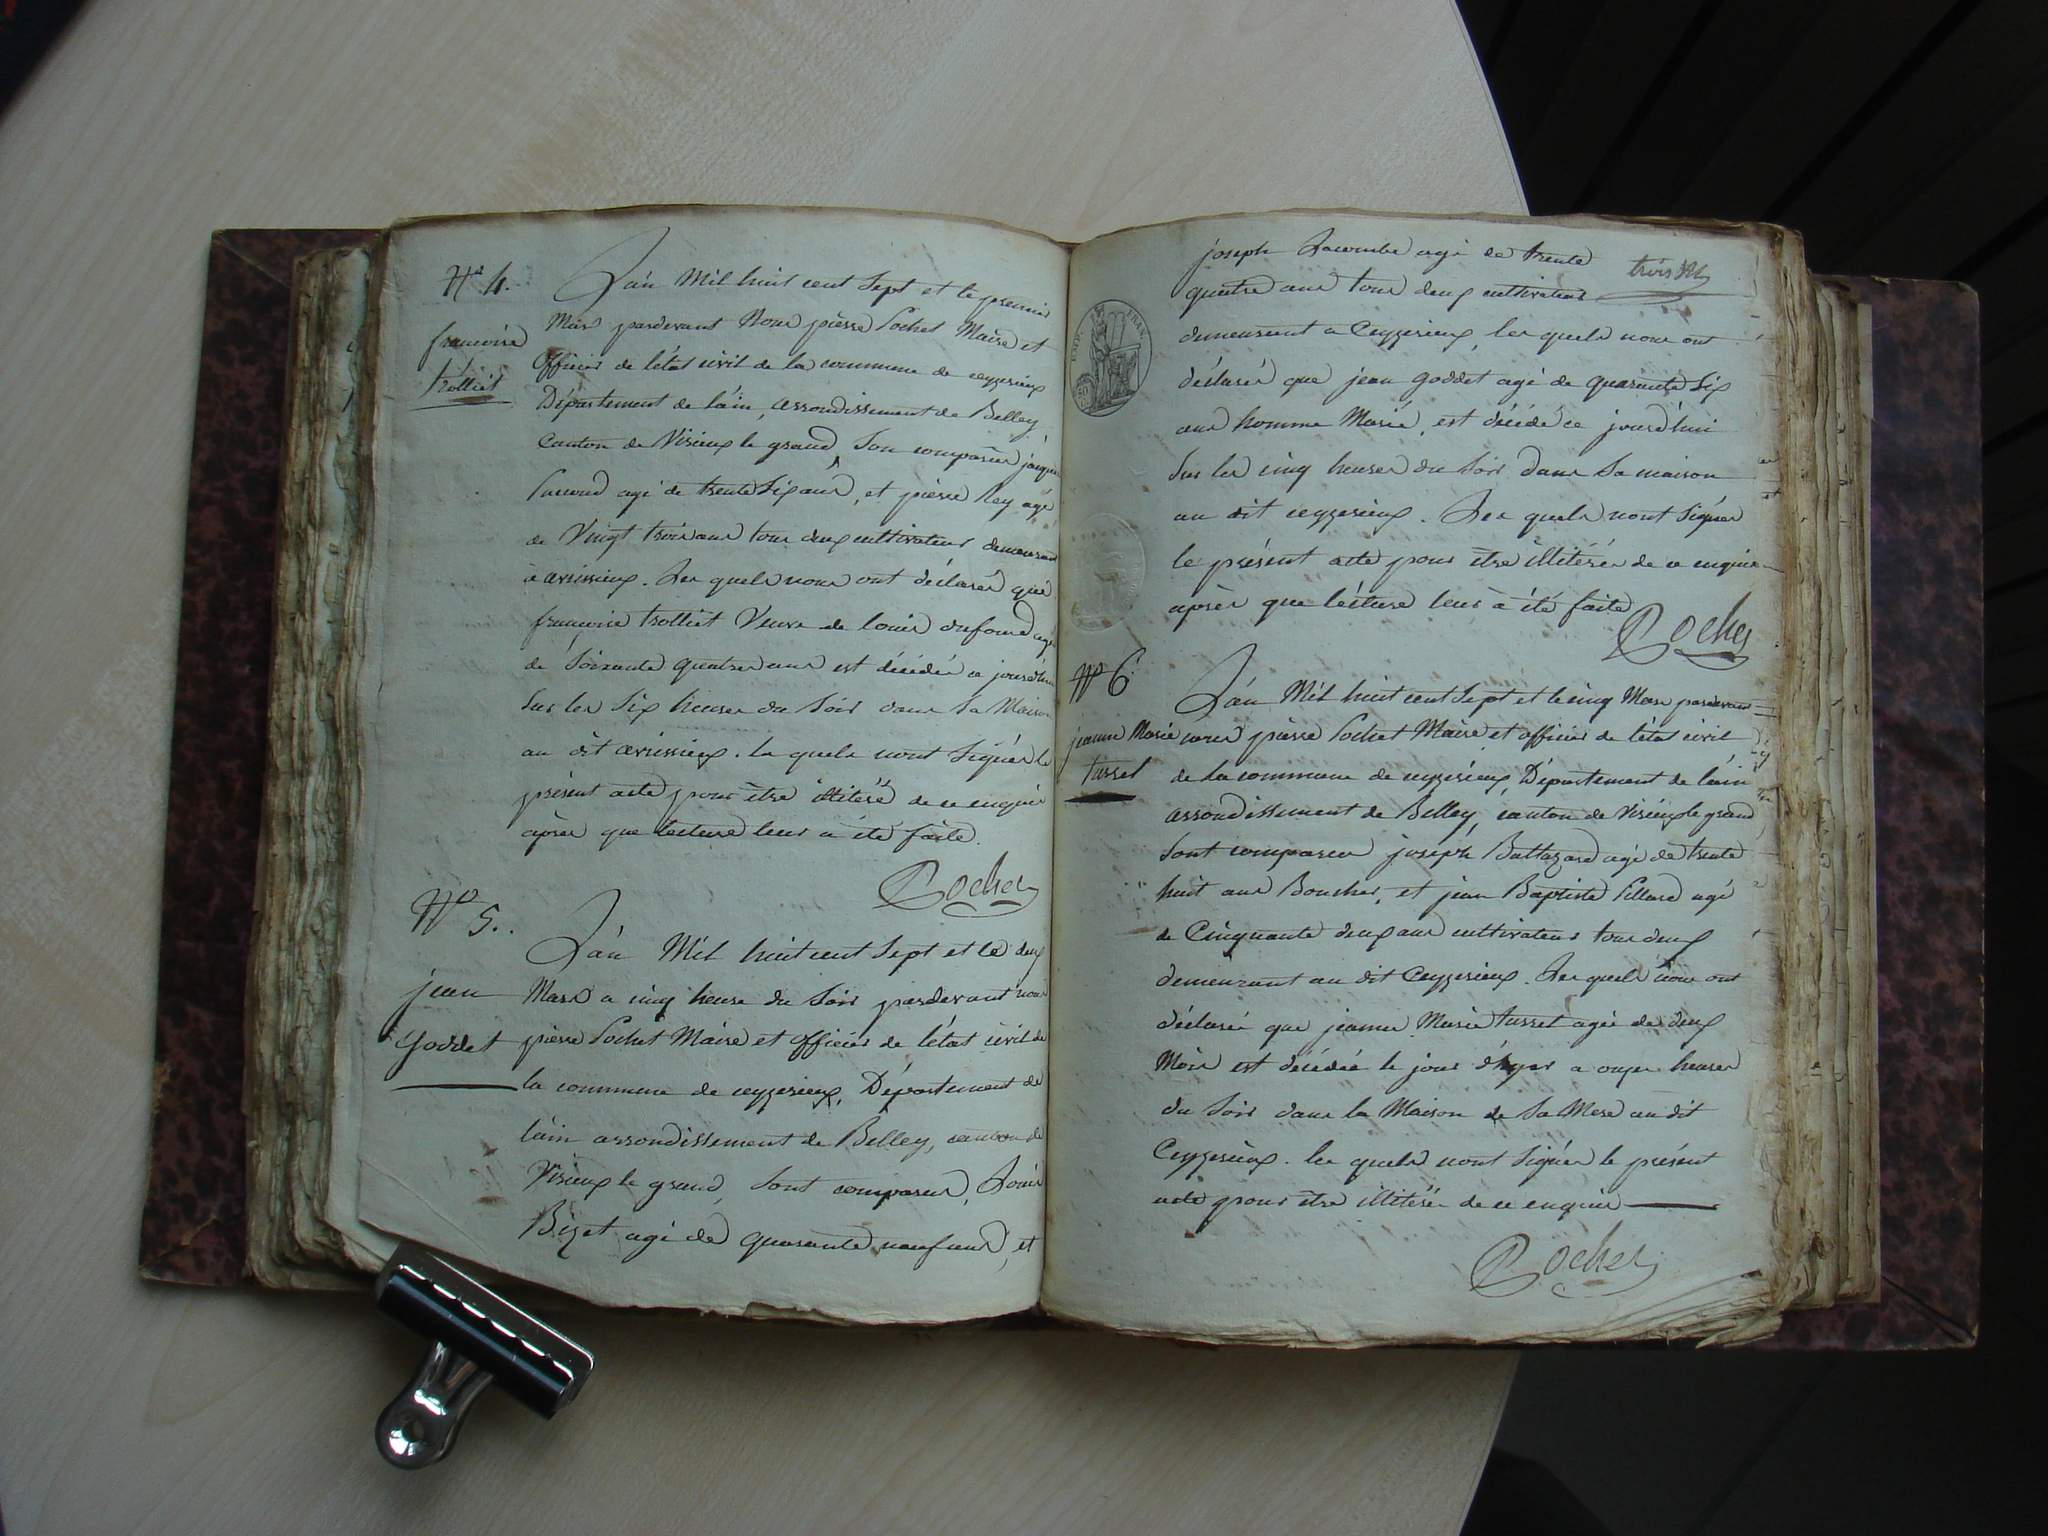 N° 4.
francoise
trolliet
L'an Mil huit cent Sept et le premier
Mars pardevant Nous pièrre Pochet Maire et
Officier de l'état civil de la commune de ceyzerieux
Département de l'ain, arrondissement de Belley
Canton de Virieux le grand, Son comparus jacque
agé de trente Six ans, et pièrre Rey agé
de Vingt trois ans tous deux cultivateurs demeurant
à avrissieux. Les quels nous ont déclarés que
françoise trolliet Veuve de louis dufour agé
de Soixante quatre ans est décédé ce jourd'hui
Sur les Six heures du Soir dans Sa Maison
au dit avrissieux. les quels n'ont Signés le
présent acte pour être illiterés de ce enquis
après que lecture leur a été faite.
Pochet
N° 5.
jean
goddet
L'an Mil huit cent Sept et le deux
Mars a cinq heure du Soir pardevant nous
pièrre Pochet Maire et Officier de l'état civil de
la commune de ceyzerieux, Département de
l'ain arrondissement de Belley, canton de
Virieux le grand, Sont comparus, Louis
Bizet agé de quarante neuf ans, et
trois
joseph Lacombe agé de trente
quatre ans tous deux cultivateurs
demeurant a Ceyzerieux, les quels nous ont
déclarés que jean goddet agé de quarante Six
ans homme Marié, est décédé ce jourd'hui
Sur les cinq heures du Soir dans Sa maison
au dit ceyzerieux. Les quels n'ont Signés
le présent acte pour être illitérés de ce enquis
après que lecture leur à été faite
Pochet
EMP. FRAN.
N° 6
jeanne Marie
tusset
L'an Mil huit cent Sept et le cinq Mars pardevant
nous pièrre Pochet Maire et officier de l'état civil
de la commune de ceyzerieux, Département de l'ain
arrondissement de Belley, canton de Virieux le grand
Sont comparus joseph Baltazard agé de trente
huit ans Boucher, et jean Baptiste Pillard agé
de Cinquante deux ans cultivateurs tous deux
demeurant au dit Ceyzerieux. Les quels nous ont
déclarés que jeanne Marie tusset agée de deux
Mois est décédée le jour d'hyer a onze heures
du Soir dans la Maison de Sa Mere au dit
Ceyzerieux. les quels n'ont Signés le présent
acte pour être illitérés de ce enquis
Pochet